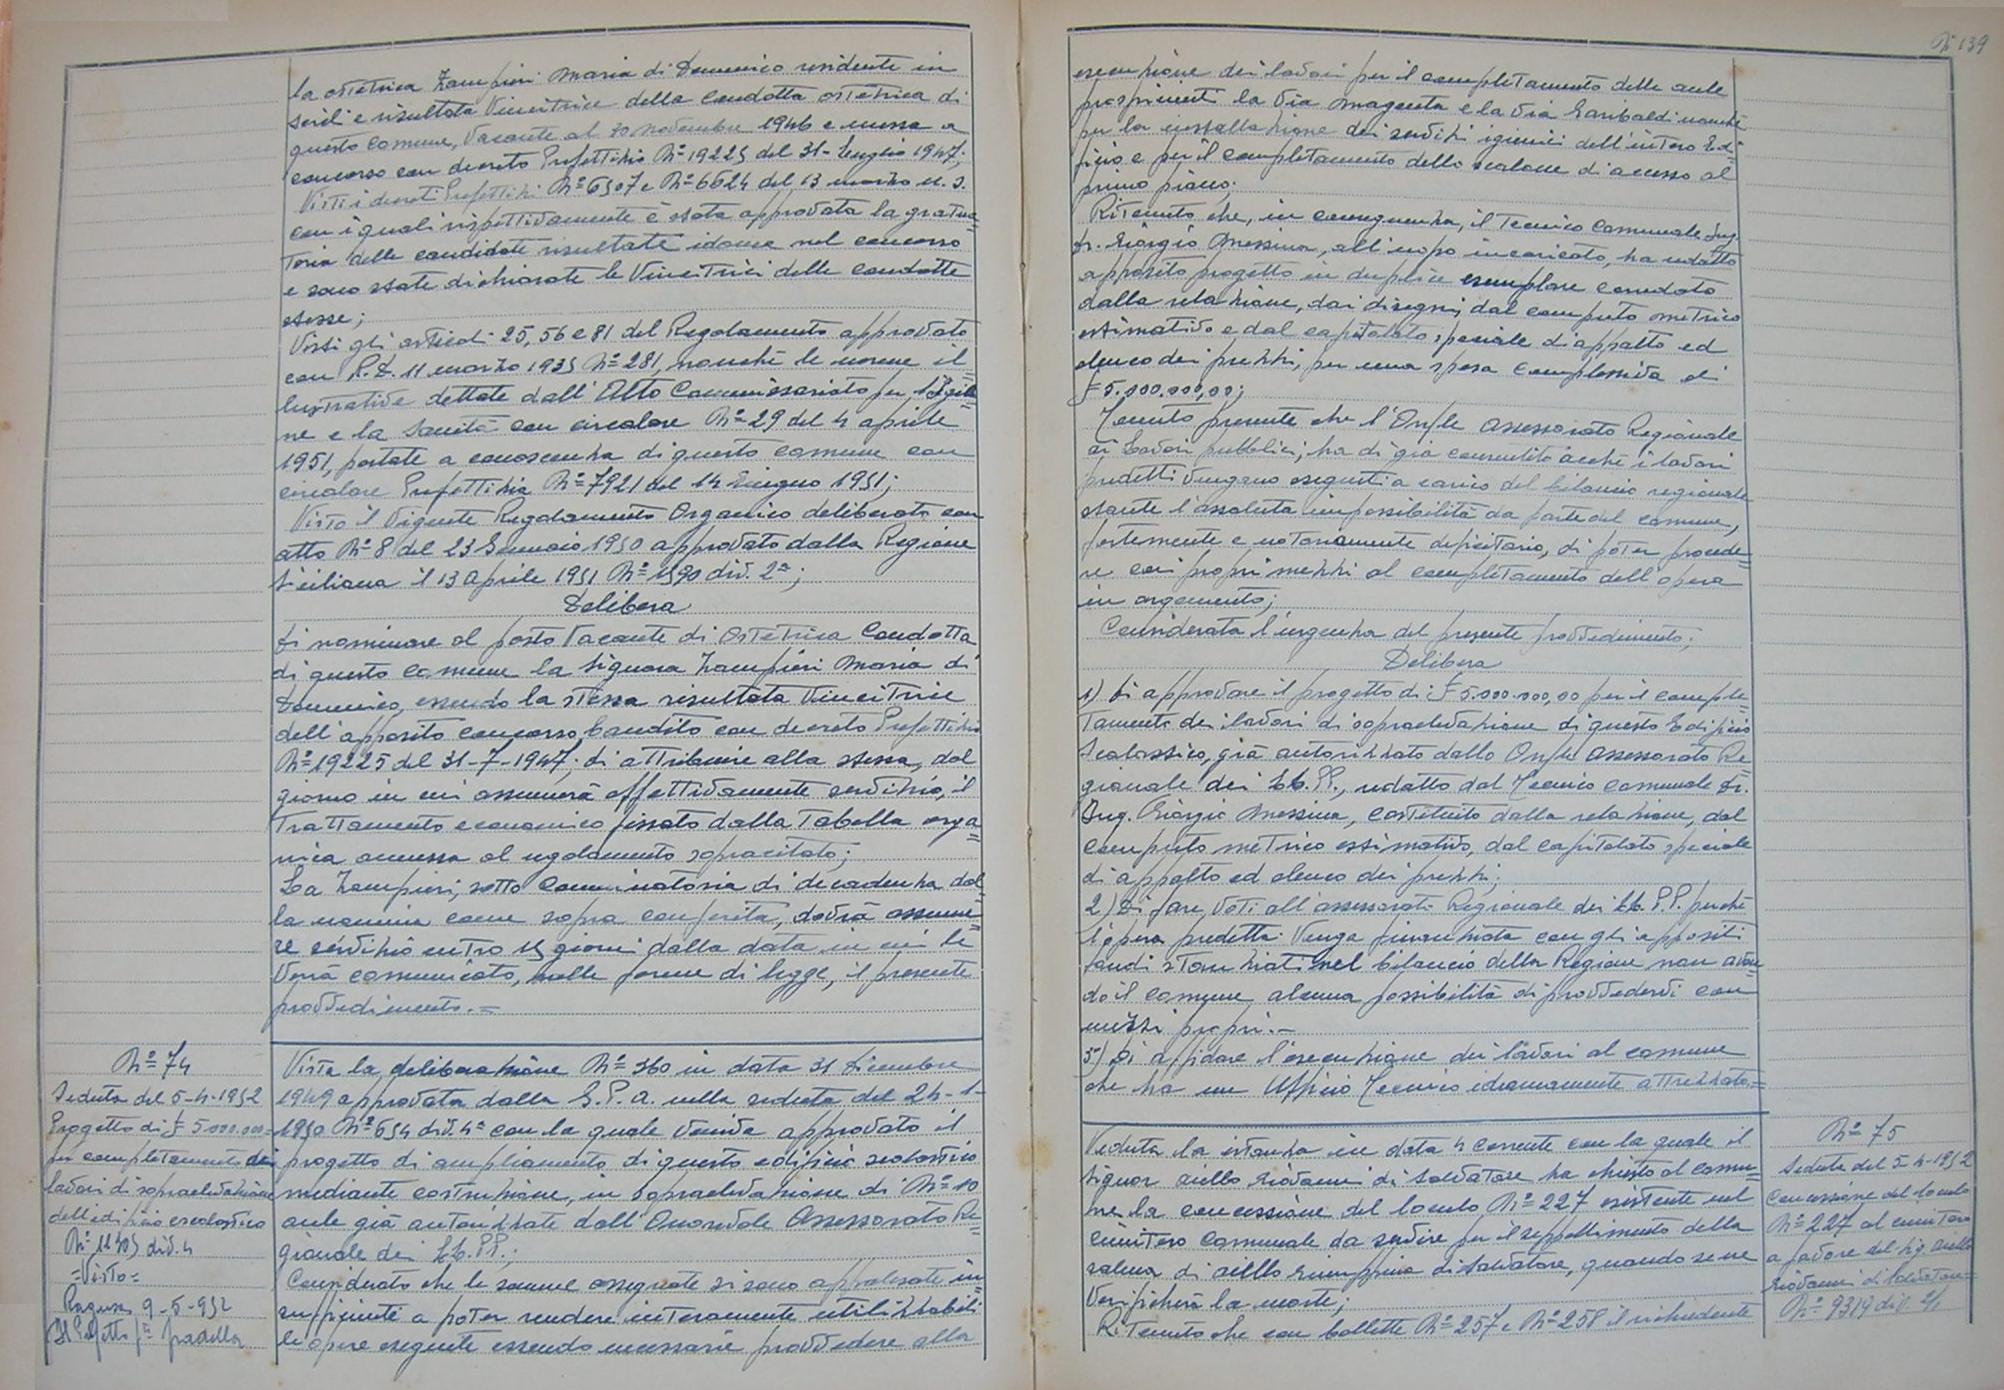 la ostetrica Zampieri Maria di Domenico residente in
Scicli e risultata vincitrice della condotta ostetrica di
questo Comune, vacante al 30 novembre 1946 e messa a
concorso con decreto Prefettizio Nº 19225 del 31 - Luglio 1947;
Visti i decreti Prefettizi Nº 6507 e Nº 6624 del 13 marzo u. s.
con i quali rispettivamente è stata approvata la gradua=
toria delle candidate risultate idonee nel concorso
e sono state dichiarate le vincitrici delle condotte
stesse;
Visti gli articoli 25, 56 e 81 del Regolamento approvato
con R. D. 11 marzo 1935 Nº 281, nonchè le norme il=
lustrative dettate dall'Alto Commissariato per l'Igie=
ne e la Sanità con circolare Nº 29 del 4 aprile
1951, portate a conoscenza di questo comune con
circolare Prefettizia Nº 7921 del 14 Giugno 1951;
Visto il vigente Regolamento Organico deliberato con
atto Nº 8 del 23 Gennaio 1950 approvato dalla Regione
Siciliana il 13 Aprile 1951 Nº 1590 div. 2ª;
Delibera
Di nominare al posto vacante di Ostetrica Condotta
di questo Comune la Signora Zampieri Maria di
Domenico, essendo la stessa risultata vincitrice
dell'apposito concorso bandito con decreto Prefettizio
Nº 19225 del 31-7-1947; di attribuire alla stessa, dal
giorno in cui assumerà effettivamente servizio, il
trattamento economico fissato dalla Tabella orga=
nica annessa al regolamento sopracitato;
La Zampieri, sotto comminatoria di decadenza dal=
la nomina come sopra conferita, dovrà assume=
re servizio entro 15 giorni dalla data in cui le
verrà comunicato, nelle forme di legge, il presente
provvedimento.=
Nº 74
Seduta del 5-4-1952
Progetto di £ 5.000.000=
per completamento dei
lavori di sopraelevazione
dell'edificio scolastico
Nº 11405 div. 4
=Visto=
Ragusa 9-5-952
Il Prefetto
Vista la deliberazione Nº 360 in data 31 Dicembre
1949 approvata dalla G. P. A. nella seduta del 24-1-
1950 Nº 654 div. 4ª con la quale veniva approvato il
progetto di ampliamento di questo edificio scolastico
mediante costruzione, in sopraelevazione di Nº 10
aule già autorizzate dall'Onorevole Assessorato Re=
gionale dei LL. PP.;
Considerato che le somme assegnate si sono appalesate in=
sufficienti a poter rendere interamente utilizzabili
le opere eseguite essendo necessario provvedere alla
Nº 139
esecuzione dei lavori per il completamento delle aule
prospicienti la Via Magenta e la Via Garibaldi nonchè
per la installazione dei servizi igienici dell'intero Edi=
ficio e per il completamento dello scalone di accesso al
primo piano;
Ritenuto che, in conseguenza, il Tecnico Comunale Ing.
Dr. Giorgio Messina, all'uopo incaricato, ha redatto
apposito progetto in duplice esemplare corredato
dalla relazione, dai disegni, dal computo metrico
estimativo e dal capitolato speciale di appalto ed
elenco dei prezzi, per una spesa complessiva di
£ 5.000.000,00;
Tenuto presente che l'On/le Assessorato Regionale
ai Lavori pubblici, ha di già consentito acchè i lavori
predetti vengano eseguiti a carico del bilancio regionale
stante l'assoluta impossibilità da parte del comune,
fortemente e notoriamente deficitario, di poter procede=
re coi propri mezzi al completamento dell'opera
in argomento;
Considerata l'urgenza del presente provvedimento;
Delibera
1) Di approvare il progetto di £ 5.000.000,00 per il comple=
tamento dei lavori di sopraelevazione di questo Edificio
Scolastico, già autorizzato dallo On/le Assessorato Re=
gionale dei LL. PP., redatto dal Tecnico comunale Dr.
Ing. Giorgio Messina, costituito dalla relazione, dal
computo metrico estimativo, dal capitolato speciale
di appalto ed elenco dei prezzi;
2) Di fare voti all'assessorato Regionale dei LL. P.P. perchè
l'opera predetta venga finanziata con gli appositi
fondi stanziati nel bilancio della Regione non aven=
do il comune alcuna possibilità di provvedervi con
mezzi propri.-
3) Di affidare l'esecuzione dei lavori al comune
che ha un Ufficio Tecnico idoneamente attrezzato.=
Veduta la istanza in data 4 corrente con la quale il
Signor Aiello Giovanni di Salvatore ha chiesto al comu=
ne la concessione del loculo Nº 227 esistente nel
Cimitero Comunale da servire per il seppellimento della
salma di Aiello Giuseppina di Salvatore, quando se ne
verificherà la morte;
Ritenuto che con bollette Nº 257 e Nº 258 il richiedente
Nº 75
Seduta del 5-4-1952
Concessione del loculo
Nº 227 al cimitero
a favore del Sig. Aiello
Giovanni di Salvatore=
Nº 9319 div. 2/1